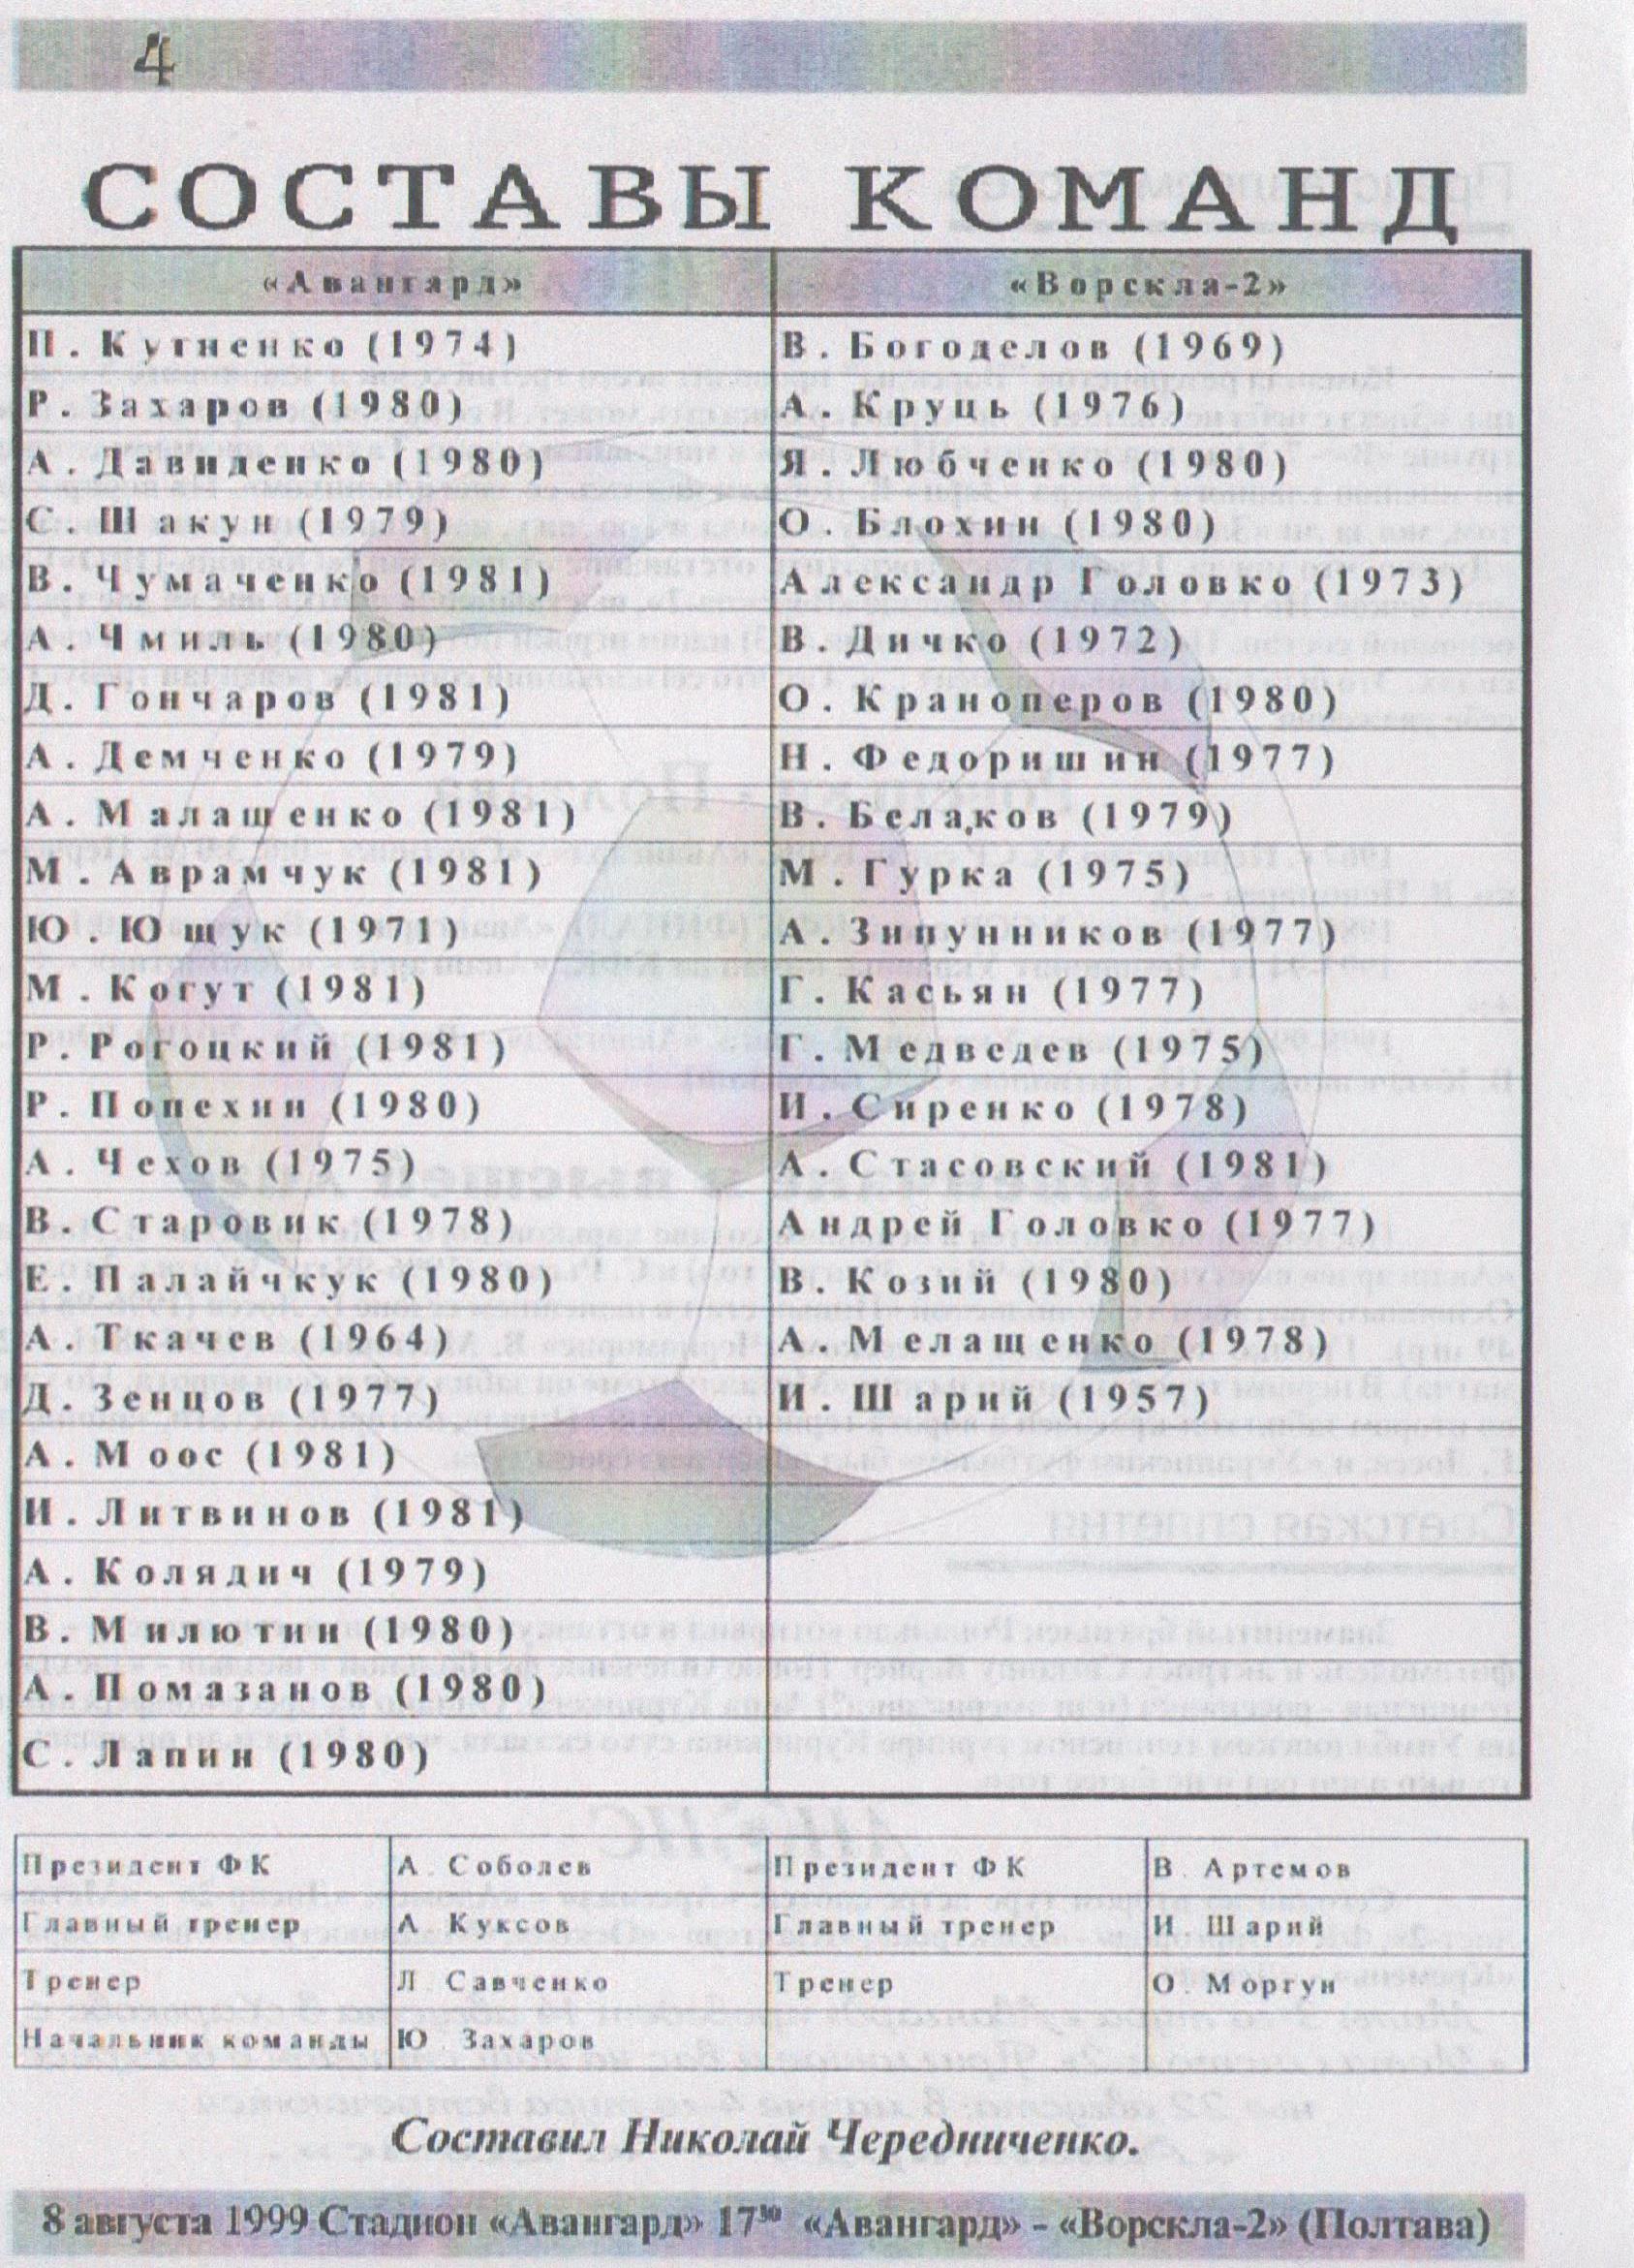 4
СОСТАВЫ КОМАНД
«Авангард» «Ворскла-2»
П. Кутненко (1974) В. Богоделов (1969)
Р. Захаров (1980) А. Круць (1976)
А. Давиденко (1980) Я. Любченко (1980)
С. Шакун (1979) О. Блохин (1980)
В. Чумаченко (1981) Александр Головко (1973)
А. Чмиль (1980) В. Дичко (1972)
Д. Гончаров (1981) О. Краноперов (1980)
А. Демченко (1979) Н. Федоришин (1977)
А. Малашенко (1981) В. Белаков (1979)
М. Аврамчук (1981) М. Гурка (1975)
Ю. Ющук (1971) А. Зипунников (1977)
М. Когут (1981) Г. Касьян (1977)
Р. Рогоцкий (1981) Г. Медведев (1975)
Р. Попехин (1980) И. Сиренко (1978)
А. Чехов (1975) А. Стасовский (1981)
В. Старовик (1978) Андрей Головко (1977)
Е. Палайчкук (1980) В. Козий (1980)
А. Ткачев (1964) А. Мелащенко (1978)
Д. Зенцов (1977) И. Шарий (1957)
А. Моос (1981)
И. Литвинов (1981)
А. Колядич (1979)
В. Милютин (1980)
А. Помазанов (1980)
С. Лапин (1980)
Президент ФК А. Соболев Президент ФК В. Артемов
Главный тренер А. Куксов Главный тренер И. Шарий
Тренер Л. Савченко Тренер О. Моргун
Начальник команды Ю. Захаров
Составил Николай Чередниченко.
8 августа 1999 Стадион «Авангард» 17³⁰ «Авангард» - «Ворскла-2» (Полтава)